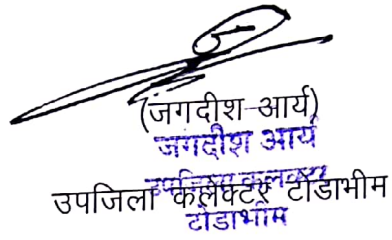 (जगदीश आर्य)
जगदीश आर्य
उपजिला कलेक्टर
उपजिला कलेक्टर टोडाभीम
टोडाभीम